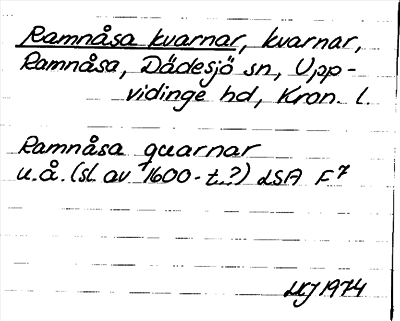 Ramnåsa kvarnar, kvarnar,
Ramnåsa, Dädesjö sn, Upp-
vidinge hd, Kron. l.
Ramnåsa quarnar
u.å. (sl. av 1600-t.?) LSA F7
LKJ 1974